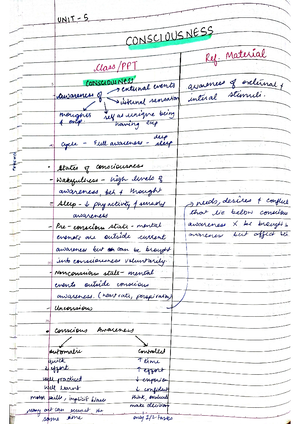 UNIT - 5
CONSCIOUSNESS
Class/PPT
Ref - Material
CONSCIOUSNESS
- Awareness of → external events
→ internal sensation
thoughts & exp
self as unique being having exp
awareness of external & internal stimuli.
- Cycle - Full awareness - deep sleep
• States of consciousness
• Wakefulness - high levels of
awareness, & thought
• Sleep - activity & sensory
awareness
• Pre-conscious state - mental
events are outside current
awareness but can be brought
into consciousness voluntarily.
• Nonconscious state - mental
events outside conscious
awareness. (heart rate, perspiration)
• Unconscious
→ needs, desires & conflict
that lie below conscious
awareness X be brought
awareness but affect
• Conscious Awareness
Automatic
Controlled
quick
↑ time
↓ effort
↑ effort
well practiced
well learnt
motor skills, implicit biases
make decision
many act can at
same time
only 1/2 tasks